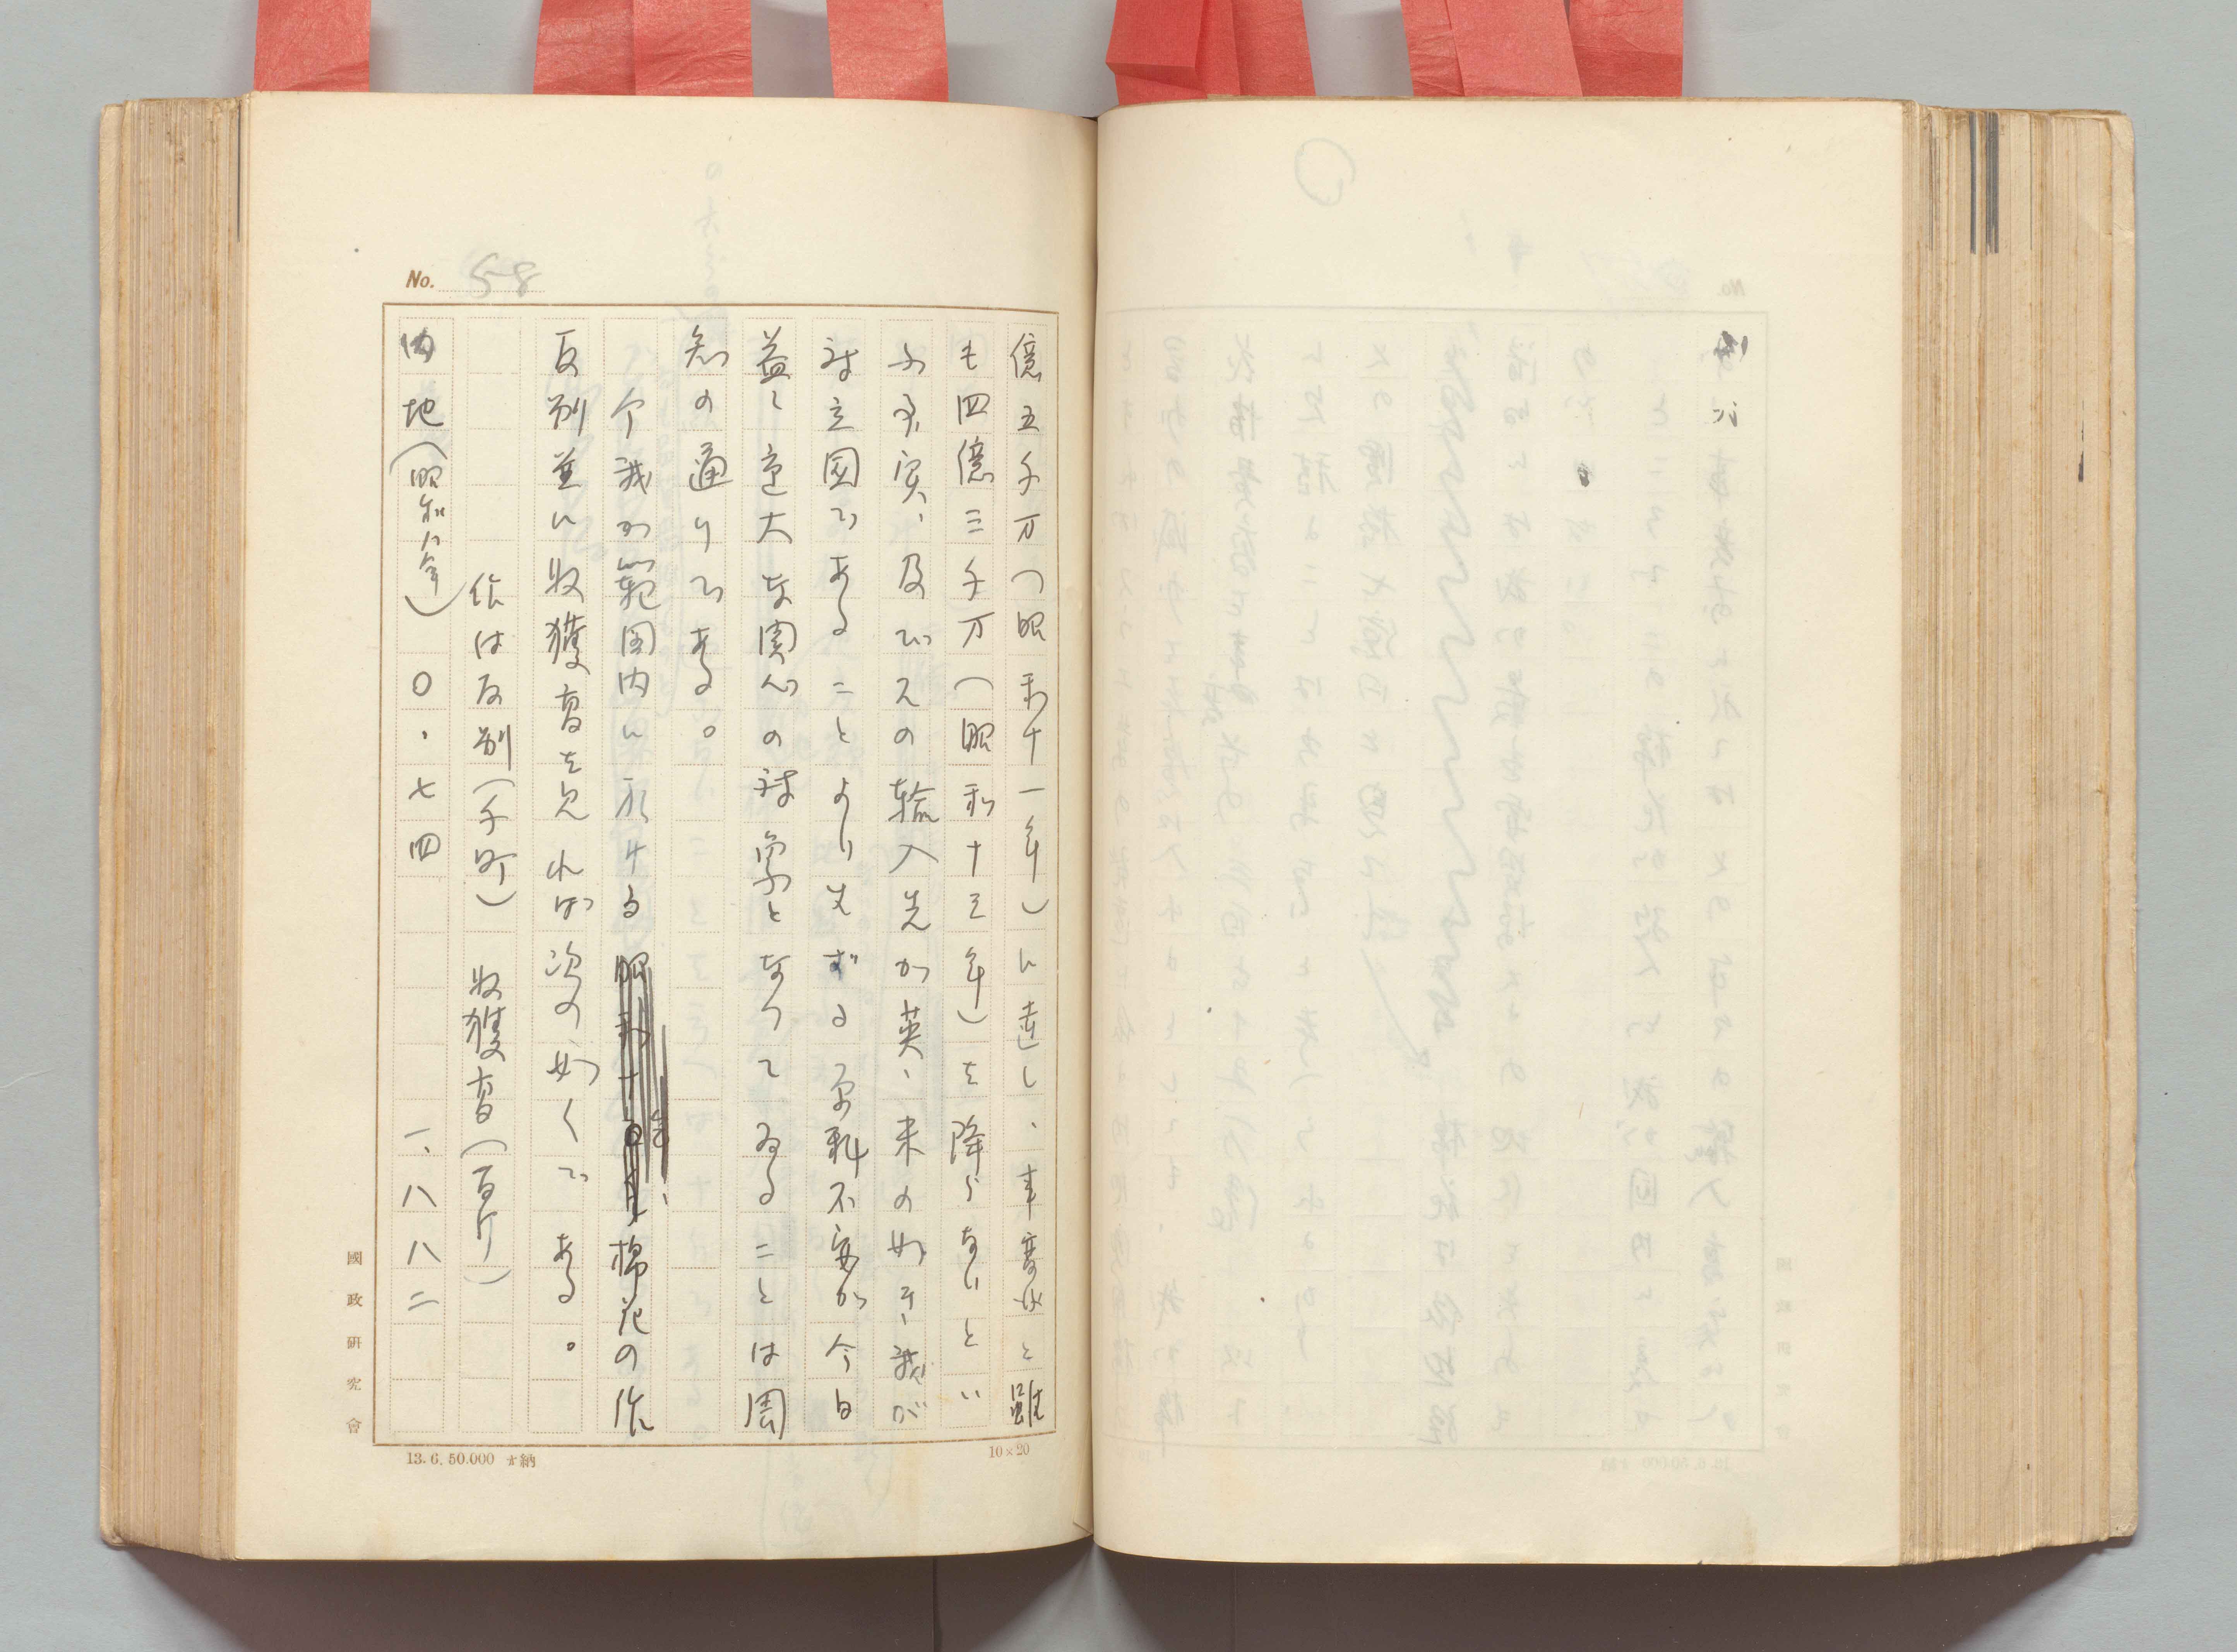 No. 58
億五千万(昭和十一年)に達し、事変後と雖
も四億三千万(昭和十三年)を降らないとい
ふ事実、及びその輸入先が英、米の如き、我が
対立国であることより生ずる原料不安が今日
益々重大な関心の対象となってゐることは周
知の通りである。
今我が範囲内に於ける、棉花の作
反別並に収獲高を見れば次の如くである。
作付反別(千町) 収獲高(百斤)
内地(昭和八年) 〇・七四 一、八八二
國政研究會
13.6.50.000 納
10×20